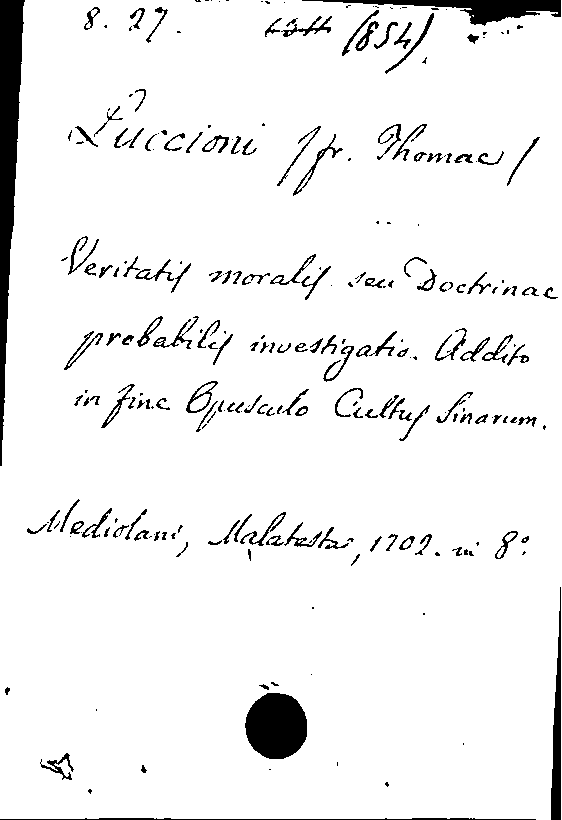 8. 27. (854).
Luccioni /fr. Thomae/
Veritatis moralis seu Doctrinae
probabilis investigatio. Addito
in fine Opusculo Cultus Sinarum.
Mediolani, Malatesta, 1702. in 8º.